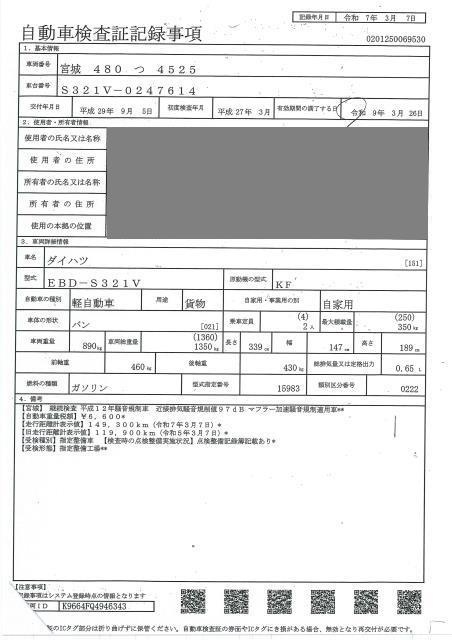 記録年月日 令和 7年 3月 7日
自動車検査証記録事項
0201250069530
1. 基本情報
車両番号 宮城 480 つ 4525
車台番号 S321V-0247614
交付年月日 平成29年 9月 5日 初度検査年月 平成27年 3月 有効期間の満了する日 令和 9年 3月 26日
2. 使用者・所有者情報
使用者の氏名又は名称
使用者の住所
所有者の氏名又は名称
所有者の住所
使用の本拠の位置
3. 車両詳細情報
車名 ダイハツ [151]
型式 EBD-S321V 原動機の型式 KF
自動車の種別 軽自動車 用途 貨物 自家用・事業用の別 自家用
車体の形状 バン [021] 乗車定員 (4) 2人 最大積載量 (250) 350kg
車両重量 890kg 車両総重量 (1360) 1350kg 長さ 339cm 幅 147cm 高さ 189cm
前軸重 460kg 後軸重 430kg 総排気量又は定格出力 0.65L
燃料の種類 ガソリン 型式指定番号 15983 類別区分番号 0222
4. 備考
【宮城】 継続検査 平成12年騒音規制車 近接排気騒音規制値97dB マフラー加速騒音規制適用車**
【自動車重量税額】¥6,600*
【走行距離計表示値】149,300km(令和7年3月7日)*
【旧走行距離計表示値】119,900km(令和5年3月7日)*
【受検種別】指定整備車 【検査時の点検整備実施状況】点検整備記録簿記載あり*
【受検形態】指定整備工場**
【注意事項】
記録事項はシステム登録時点の情報となります
ID K9664FQ4946343
ICタグ部分は折り曲げずに保管ください。自動車検査証の券面やICタグにき損がある場合、無効となり再交付が必要です。